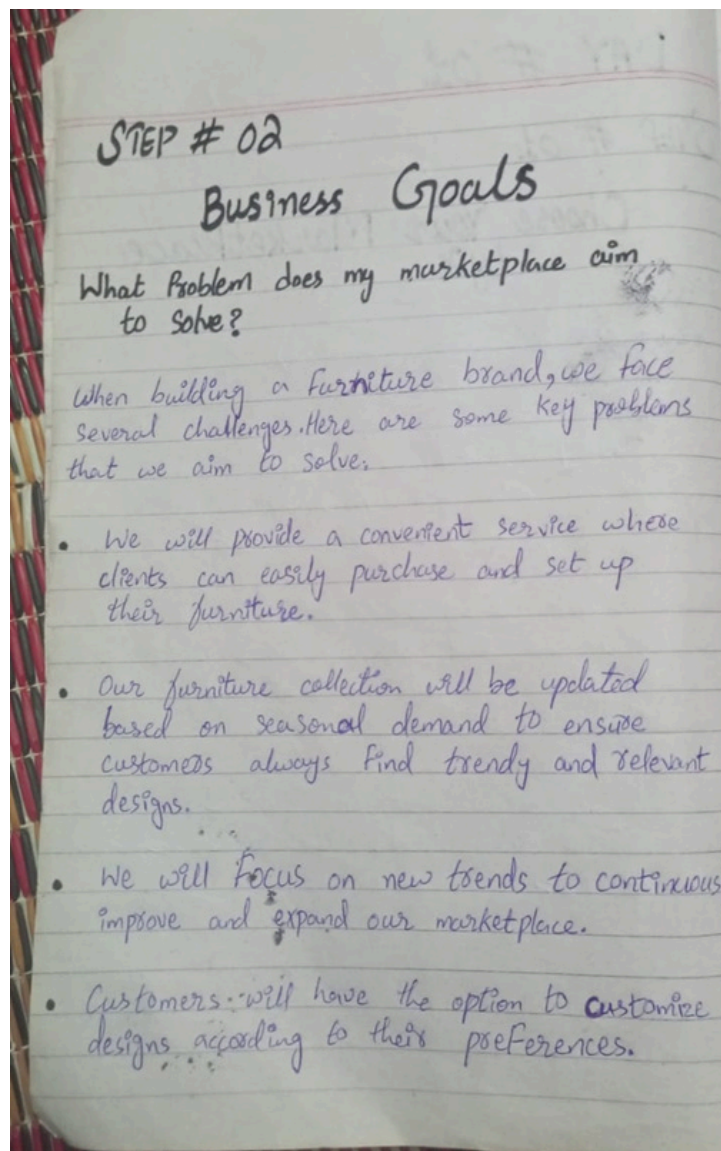 STEP # 02
Business Goals
What Problem does my marketplace aim
to solve?
When building a furniture brand, we face
several challenges. Here are some key problems
that we aim to solve.
• We will provide a convenient service where
clients can easily purchase and set up
their furniture.
• Our furniture collection will be updated
based on seasonal demand to ensure
customers always find trendy and relevant
designs.
• We will Focus on new trends to continuous
improve and expand our marketplace.
• Customers will have the option to customize
designs according to their preferences.